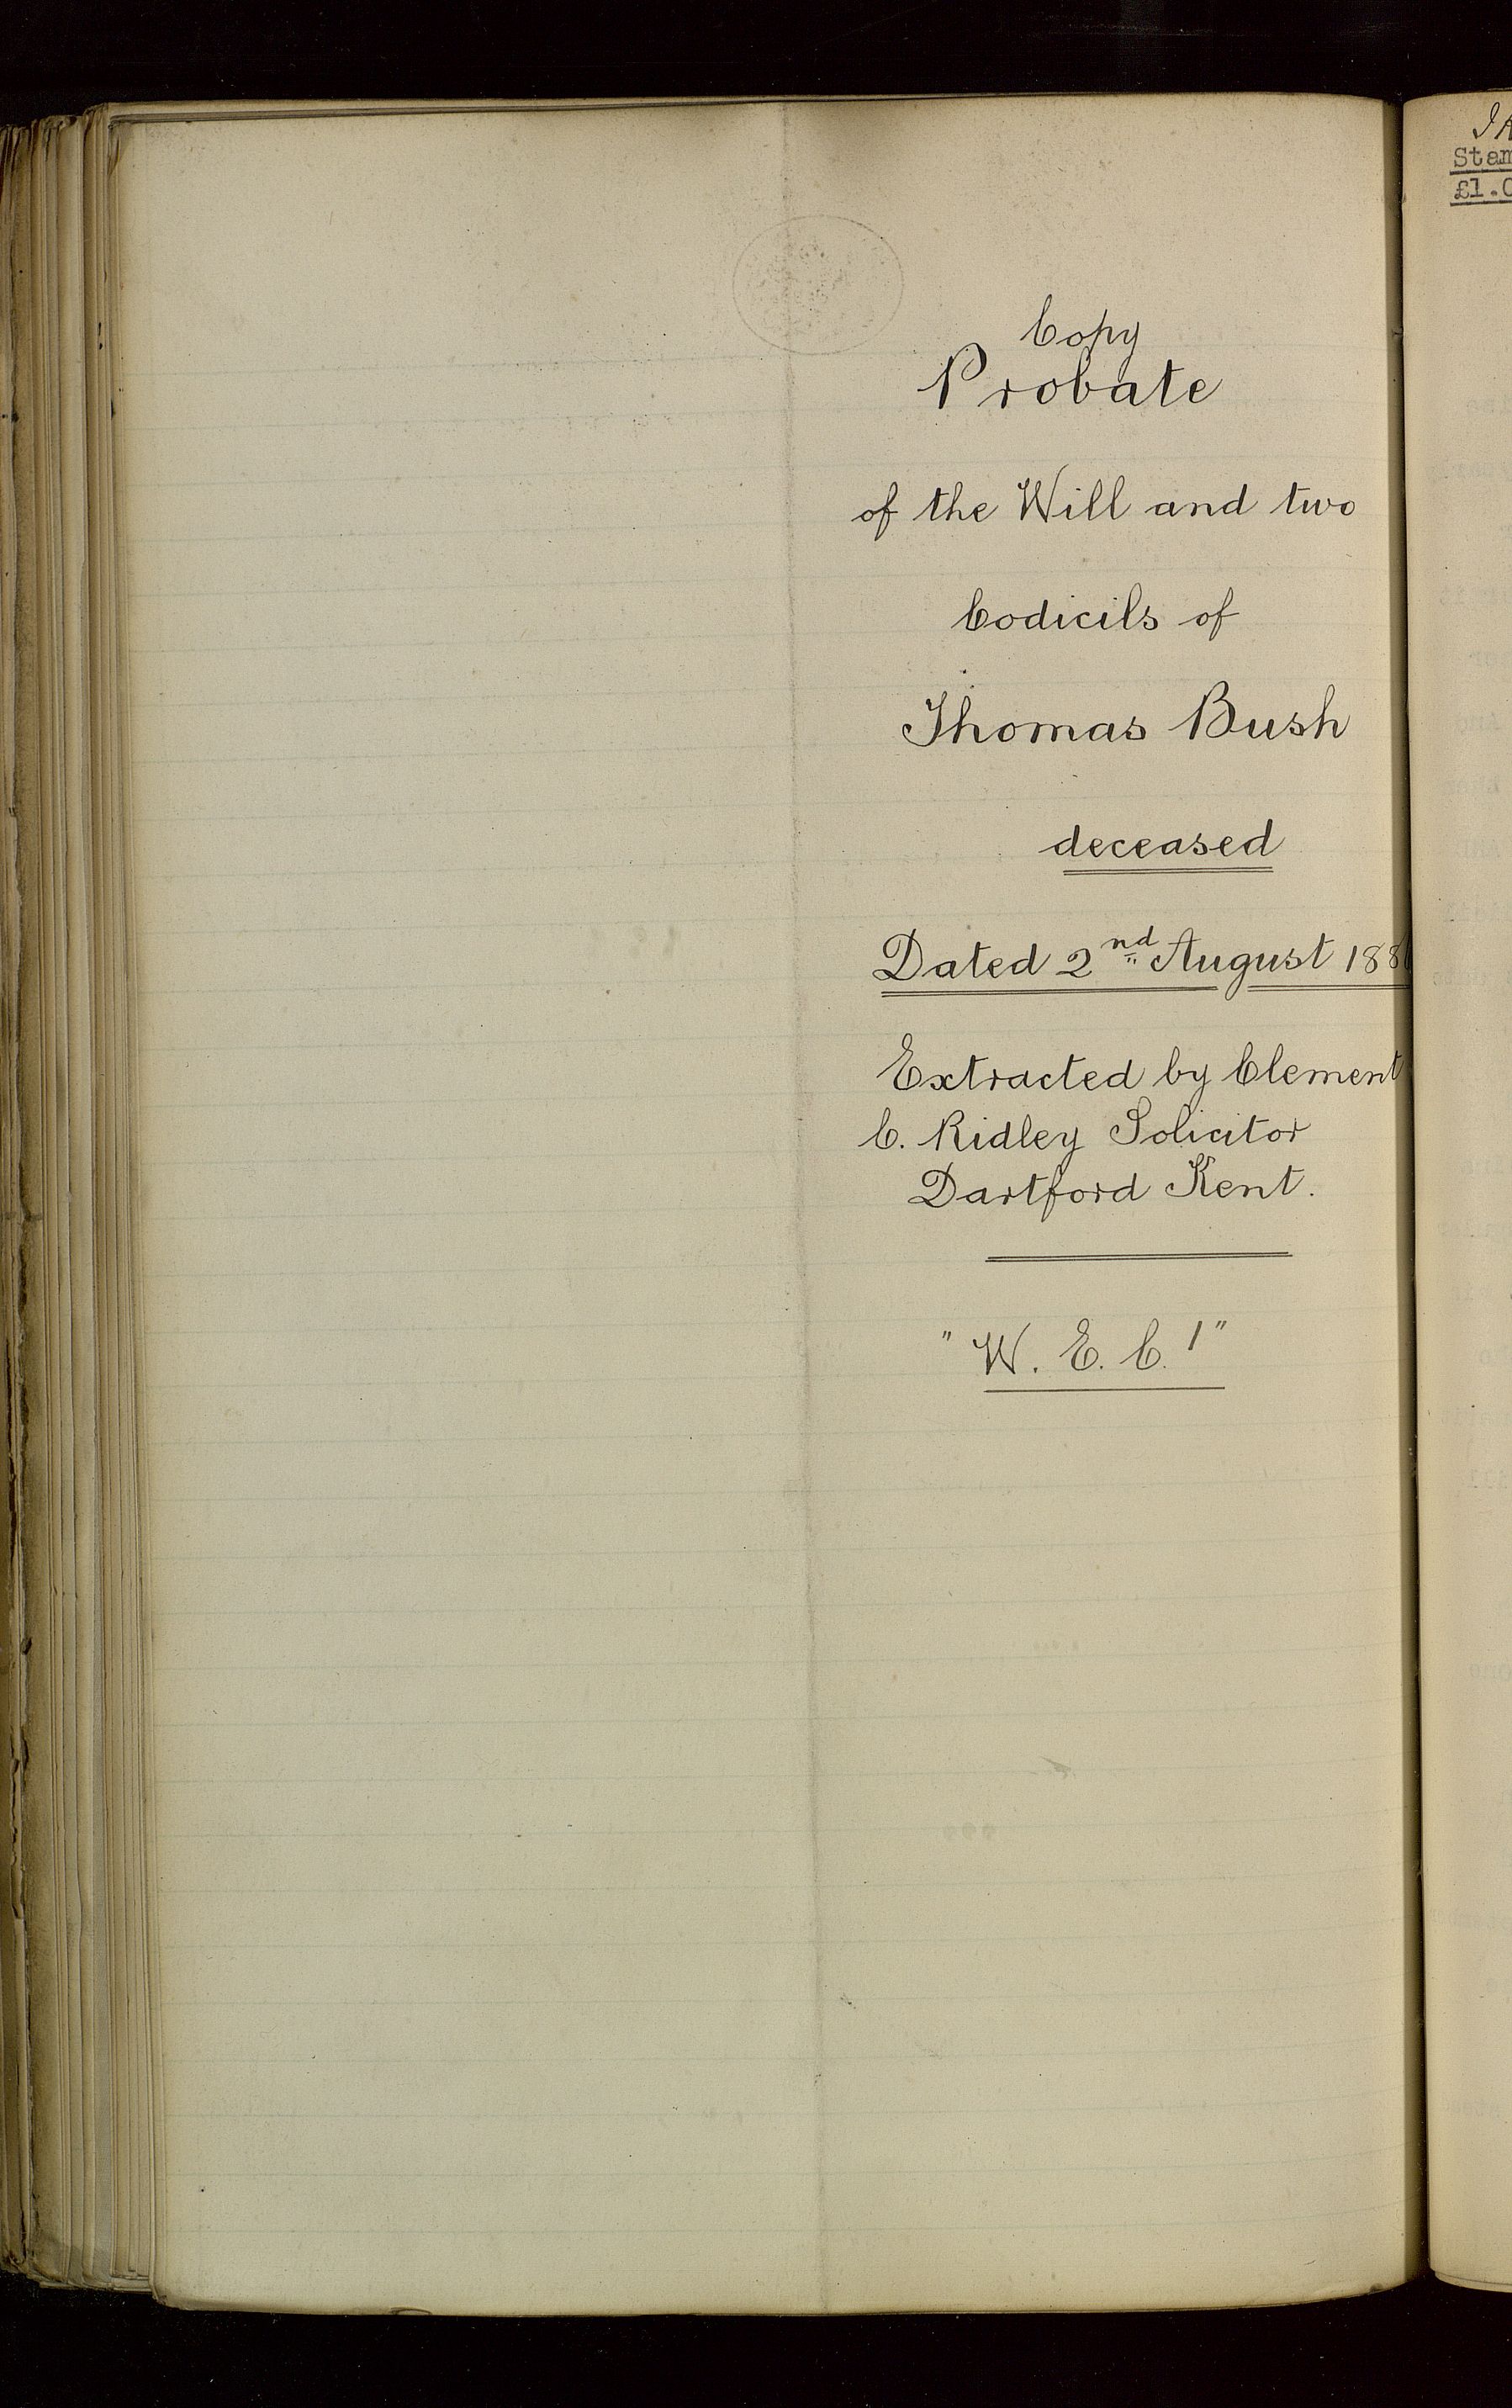 Copy
Probate
of the Will and two
Codicils of
Thomas Bush
deceased
Dated 2nd August
Extracted by Clement
C. Ridley Solicitor
Dartford Kent.
"W. E. C. 1"